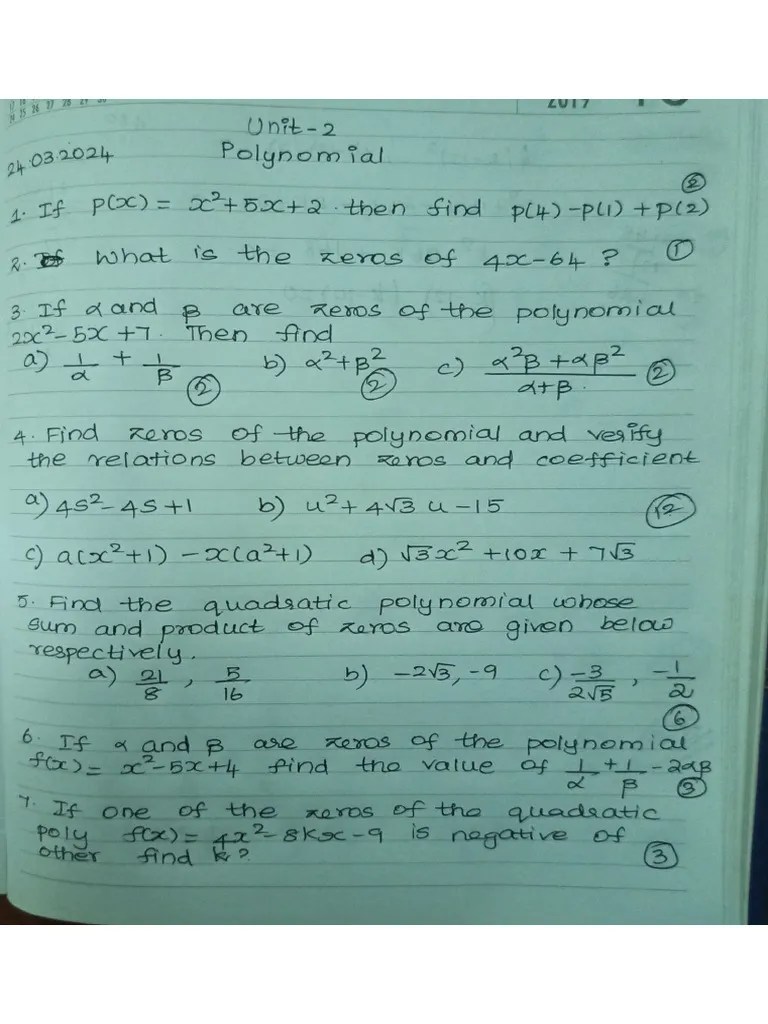 24 25 26 27 28 29 30
2019
Unit-2
24.03.2024 Polynomial
②
1. If p(x) = x²+5x+2 . then find p(4)-p(1)+p(2)
2. What is the zeros of 4x-64 ? ①
3. If α and β are zeros of the polynomial
2x²-5x+7. Then find
a) 1/α + 1/β ② b) α²+β² ② c) (α²β+αβ²)/(α+β). ②
4. Find zeros of the polynomial and verify
the relations between zeros and coefficient
a) 4s²-4s+1 b) u²+4√3 u-15 ⑫
c) a(x²+1)-x(a²+1) d) √3x²+10x+7√3
5. Find the quadratic polynomial whose
sum and product of zeros are given below
respectively.
a) 21/8 , 5/16 b) -2√3, -9 c) -3/2√5 , -1/2
⑥
6. If α and β are zeros of the polynomial
f(x)= x²-5x+4 find the value of 1/α+1/β-2αβ
③
7. If one of the zeros of the quadratic
poly f(x)= 4x²-8kx-9 is negative of
other find k? ③